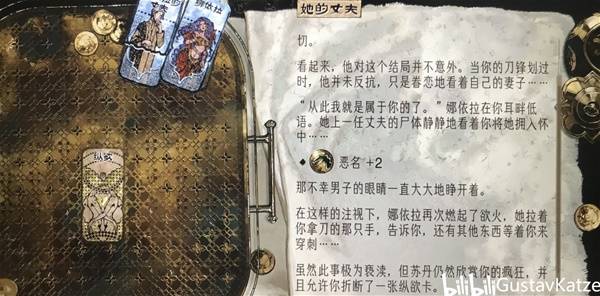 她的丈夫
娜依拉
纵欲
切。
看起来，他对这个结局并不意外。当你的刀锋划过
时，他并未反抗，只是眷恋地看着自己的妻子……
“从此我就是属于你的了。”娜依拉在你耳畔低
语。她上一任丈夫的尸体静静地看着你将她拥入怀
中……
恶名 +2
那不幸男子的眼睛一直大大地睁开着。
在这样的注视下，娜依拉再次燃起了欲火，她拉着
你拿刀的那只手，告诉你，还有其他东西等着你来
穿刺……
虽然此事极为亵渎，但苏丹仍然欣赏你的疯狂，并
且允许你折断了一张纵欲卡。
bilibili GustavKatze